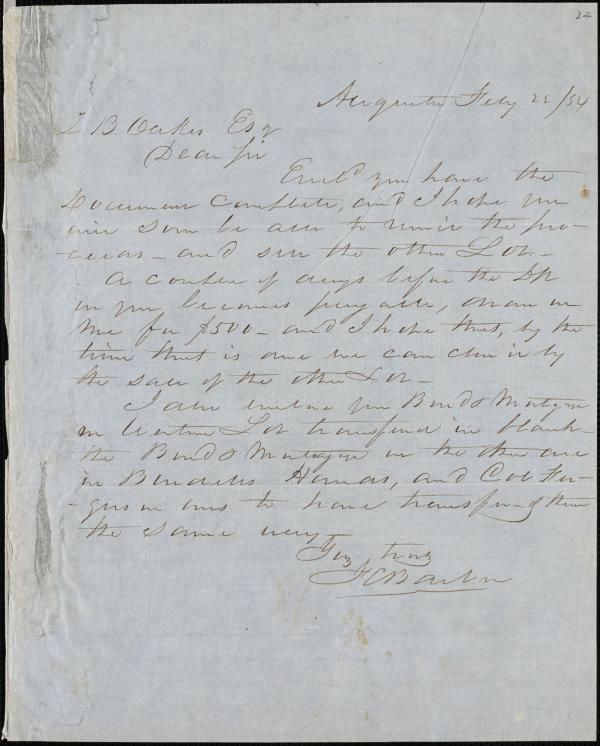 32
Augusta Feby 22 /54
Z B Oakes Esq
Dear Sir
Encld you have the
Document complete, and I hope you
will soon be able to remit the pro-
-ceeds - and sell the other Lot -
A couple of days before the Dft
on you becomes payable, draw on
me for $500 - and I hope that, by the
time that is due we can close it by
the sale of the other Lot -
I also enclose you Bond & Mortgage
on Lot transferred in blank
the Bond & Mortgage on the other are
in Hands, and Col Fer-
-guson was to have transferred them
the same way
Yrs truly
J C Barber